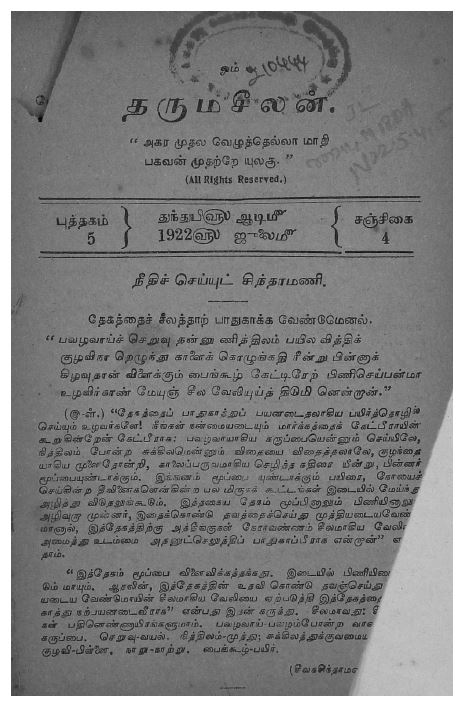 ஓம்
210444
தருமசீலன்.
“ அகர முதல வேழுத்தெல்லா மாதி
பகவன் முதற்றே யுலகு. ”
(All Rights Reserved.)
புத்தகம் 5
துந்துபிஹ ஆடிமீ
1922ஹ ஜுலைமீ
சஞ்சிகை 4
நீதிச் செய்யுட் சிந்தாமணி.
தேகத்தைச் சீலத்தாற் பாதுகாக்க வேண்டுமேனல்.
“ பவழவாய்ச் செறுவு தன்னு ணித்திலம் பயில வித்திக்
குழவிநா றெழுந்து காளைக் கொழுங்கதி ரீன்று பின்னாக்
கிழவுதான் விளைக்கும் பைங்கூழ் கேட்டிரேற் பிணிசெய்பன்மா
உழவிர்காண் மேயுஞ் சீல வேலியுய்த் திடுமி னென்றான்.”
(கு-ள்.) “தேகத்தைப் பாதுகாத்துப் பயனடைதலாகிய பயிர்த்தொழில்
செய்யும் உழவர்களே! நீங்கள் நன்மையடையும் மார்க்கத்தைக் கேட்பீராயின்
கூறுகின்றேன் கேட்பீராக: பவழவாயாகிய கருப்பையென்னும் செய்யிலே,
நித்திலம் போன்ற சுக்கிலமென்னும் விதையை விதைத்தலாலே, குழந்தை
யாகிய முளைதோன்றி, காளைப்பருவமாகிய செழித்த கதிரை யீன்று, பின்னர்
மூப்பையுண்டாக்கும். இங்ஙனம் மூப்பை யுண்டாக்கும் பயிரை, நோயைச்
செய்கின்ற தீவினைகளென்கின்ற பல மிருகக் கூட்டங்கள் இடையில் மேய்ந்து
அழித்து விடுதலுங்கூடும். இத்தகைய தேகம் மூப்பினாலும் பிணியினாலு
அழிவுறு முன்னர், இதைக்கொண்டு தவத்தைச்செய்து முத்தியடையவேண்
மானால், இத்தேகத்திற்கு அத்தீங்குகள் நேராவண்ணம் சீலமாகிய வேலி
அமைத்து உடம்பை அதனுட்செலுத்திப் பாதுகாப்பீராக என்றான்”
தாம்.
“இத்தேகம் மூப்பை விளைவிக்கத்தக்கது. இடையில் பிணியினை
டும் மாயும். ஆதலின், இத்தேகத்தின் உதவி கொண்டு தவஞ்செய்து
யடைய வேண்டுமாயின் சீலமாகிய வேலியை ஏற்படுத்தி இத்தேகத்தை
காத்து நற்பயனடைவீராக” என்பது இதன் கருத்து. சீலமாவது:
கள் பதினெண்ணாயிரங்களுமாம். பவழவாய்-பவழம்போன்ற வா
கருப்பை. செறுவு-வயல். நித்திலம்-முத்து; சுக்கிலத்துக்குவமைய
குழவி-பிள்ளை. நாறு-நாற்று. பைங்கூழ்-பயிர்.
(சீவகசிந்தாம